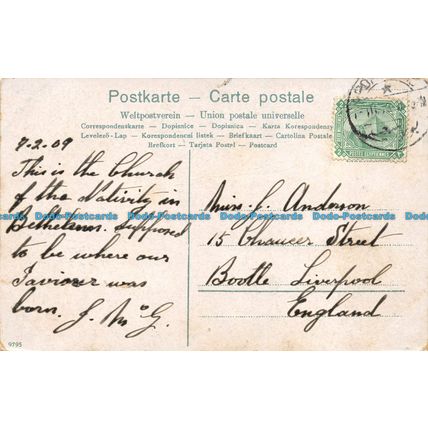 Postkarte – Carte postale
Weltpostverein – Union postale universelle
Correspondenzkarte – Dopisnice – Dopisnica – Karta Korespondencyjna
Levelező-Lap – Korrespondenzkarte
Brefkort – Tarjeta Postal – Postcard
7.2.09
This is the Church
of the Nativity in
Bethlehem. supposed
to be where our
Saviour was
born. J. McG.
Miss. J. Anderson
15 Chaucer Street
Bootle Liverpool
England
POSTES EGYPTIENNES
Dodo-Postcards Dodo-Postcards Dodo-Postcards Dodo-Postcards
9795